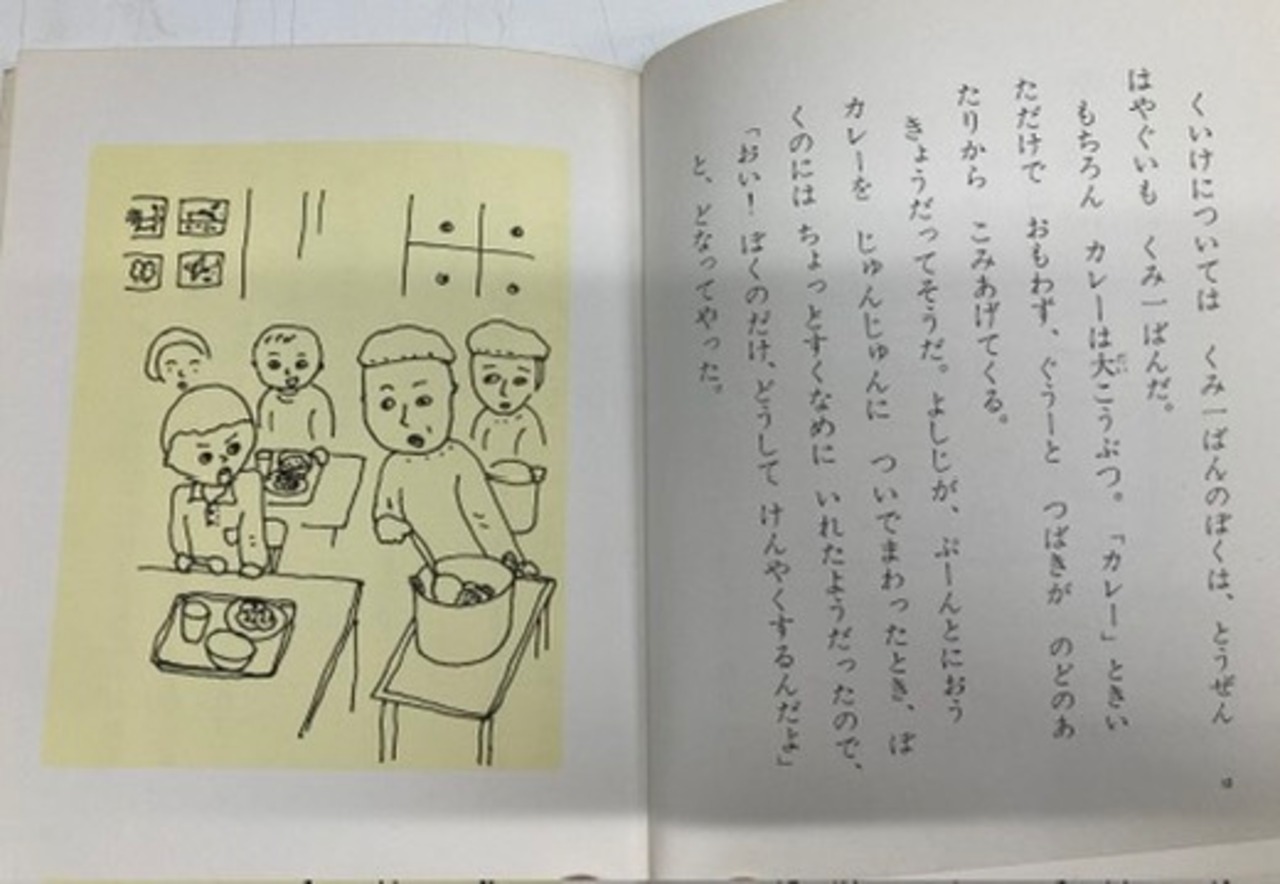 くいけについては　くみ一ばんのぼくは、とうぜん
はやぐいも　くみ一ばんだ。
もちろん　カレーは大こうぶつ。「カレー」ときい
ただけで　おもわず、ぐうーと　つばきが　のどのあ
たりから　こみあげてくる。
きょうだってそうだ。よしじが、ぷーんとにおう
カレーを　じゅんじゅんに　ついでまわったとき、ぼ
くのには　ちょっとすくなめに　いれたようだったので、
「おい！ぼくのだけ、どうして　けんやくするんだよ」
と、どなってやった。